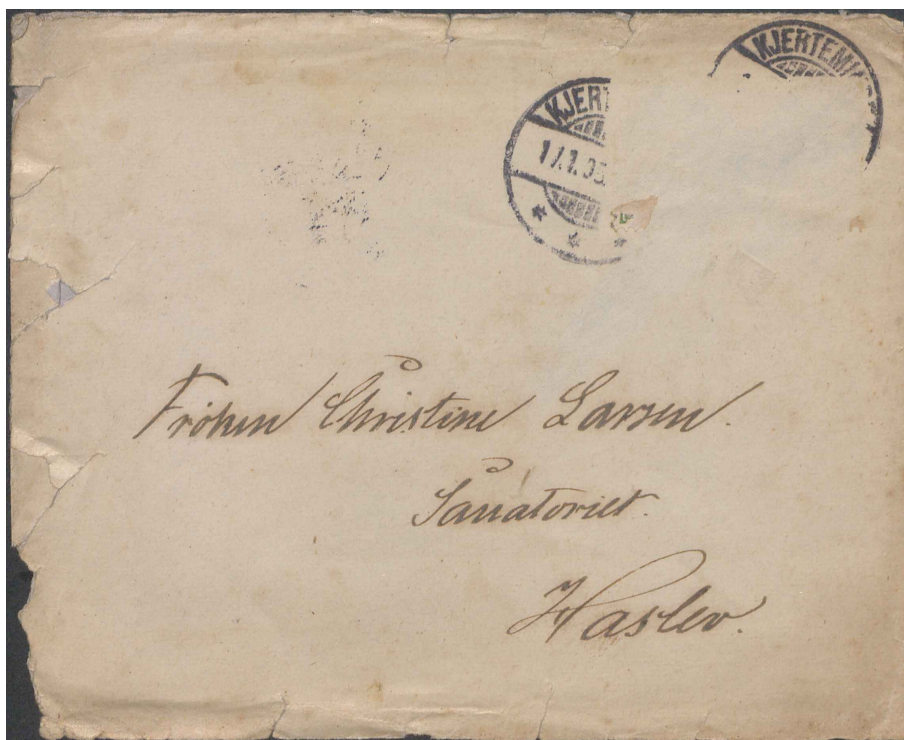 KJERTEMI
KJERT
Fröken Christine Larsen.
Sanatoriet.
Haslev.